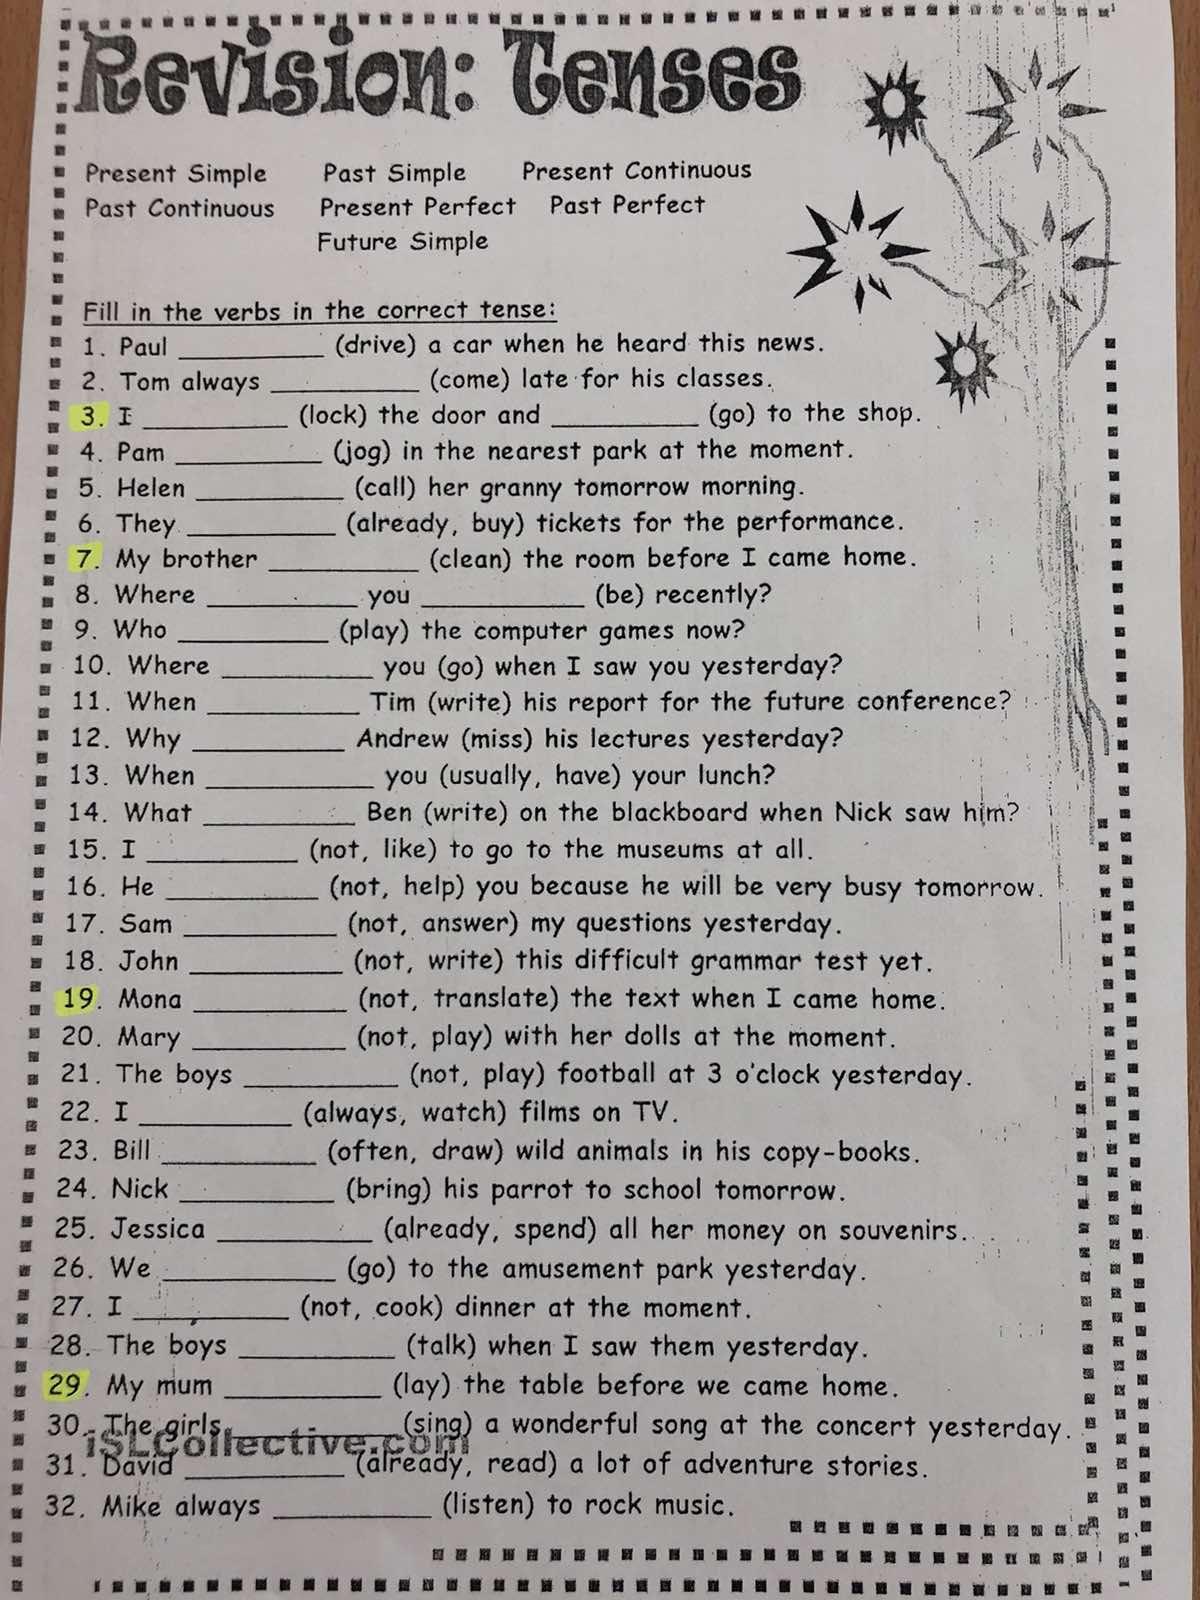 Revision: Tenses
Present Simple Past Simple Present Continuous
Past Continuous Present Perfect Past Perfect
Future Simple
Fill in the verbs in the correct tense:
1. Paul __________ (drive) a car when he heard this news.
2. Tom always __________ (come) late for his classes.
3. I __________ (lock) the door and __________ (go) to the shop.
4. Pam __________ (jog) in the nearest park at the moment.
5. Helen __________ (call) her granny tomorrow morning.
6. They __________ (already, buy) tickets for the performance.
7. My brother __________ (clean) the room before I came home.
8. Where __________ you __________ (be) recently?
9. Who __________ (play) the computer games now?
10. Where __________ you (go) when I saw you yesterday?
11. When __________ Tim (write) his report for the future conference?
12. Why __________ Andrew (miss) his lectures yesterday?
13. When __________ you (usually, have) your lunch?
14. What __________ Ben (write) on the blackboard when Nick saw him?
15. I __________ (not, like) to go to the museums at all.
16. He __________ (not, help) you because he will be very busy tomorrow.
17. Sam __________ (not, answer) my questions yesterday.
18. John __________ (not, write) this difficult grammar test yet.
19. Mona __________ (not, translate) the text when I came home.
20. Mary __________ (not, play) with her dolls at the moment.
21. The boys __________ (not, play) football at 3 o'clock yesterday.
22. I __________ (always, watch) films on TV.
23. Bill __________ (often, draw) wild animals in his copy-books.
24. Nick __________ (bring) his parrot to school tomorrow.
25. Jessica __________ (already, spend) all her money on souvenirs.
26. We __________ (go) to the amusement park yesterday.
27. I __________ (not, cook) dinner at the moment.
28. The boys __________ (talk) when I saw them yesterday.
29. My mum __________ (lay) the table before we came home.
30. The girls __________ (sing) a wonderful song at the concert yesterday.
iSLCollective.com
31. David __________ (already, read) a lot of adventure stories.
32. Mike always __________ (listen) to rock music.